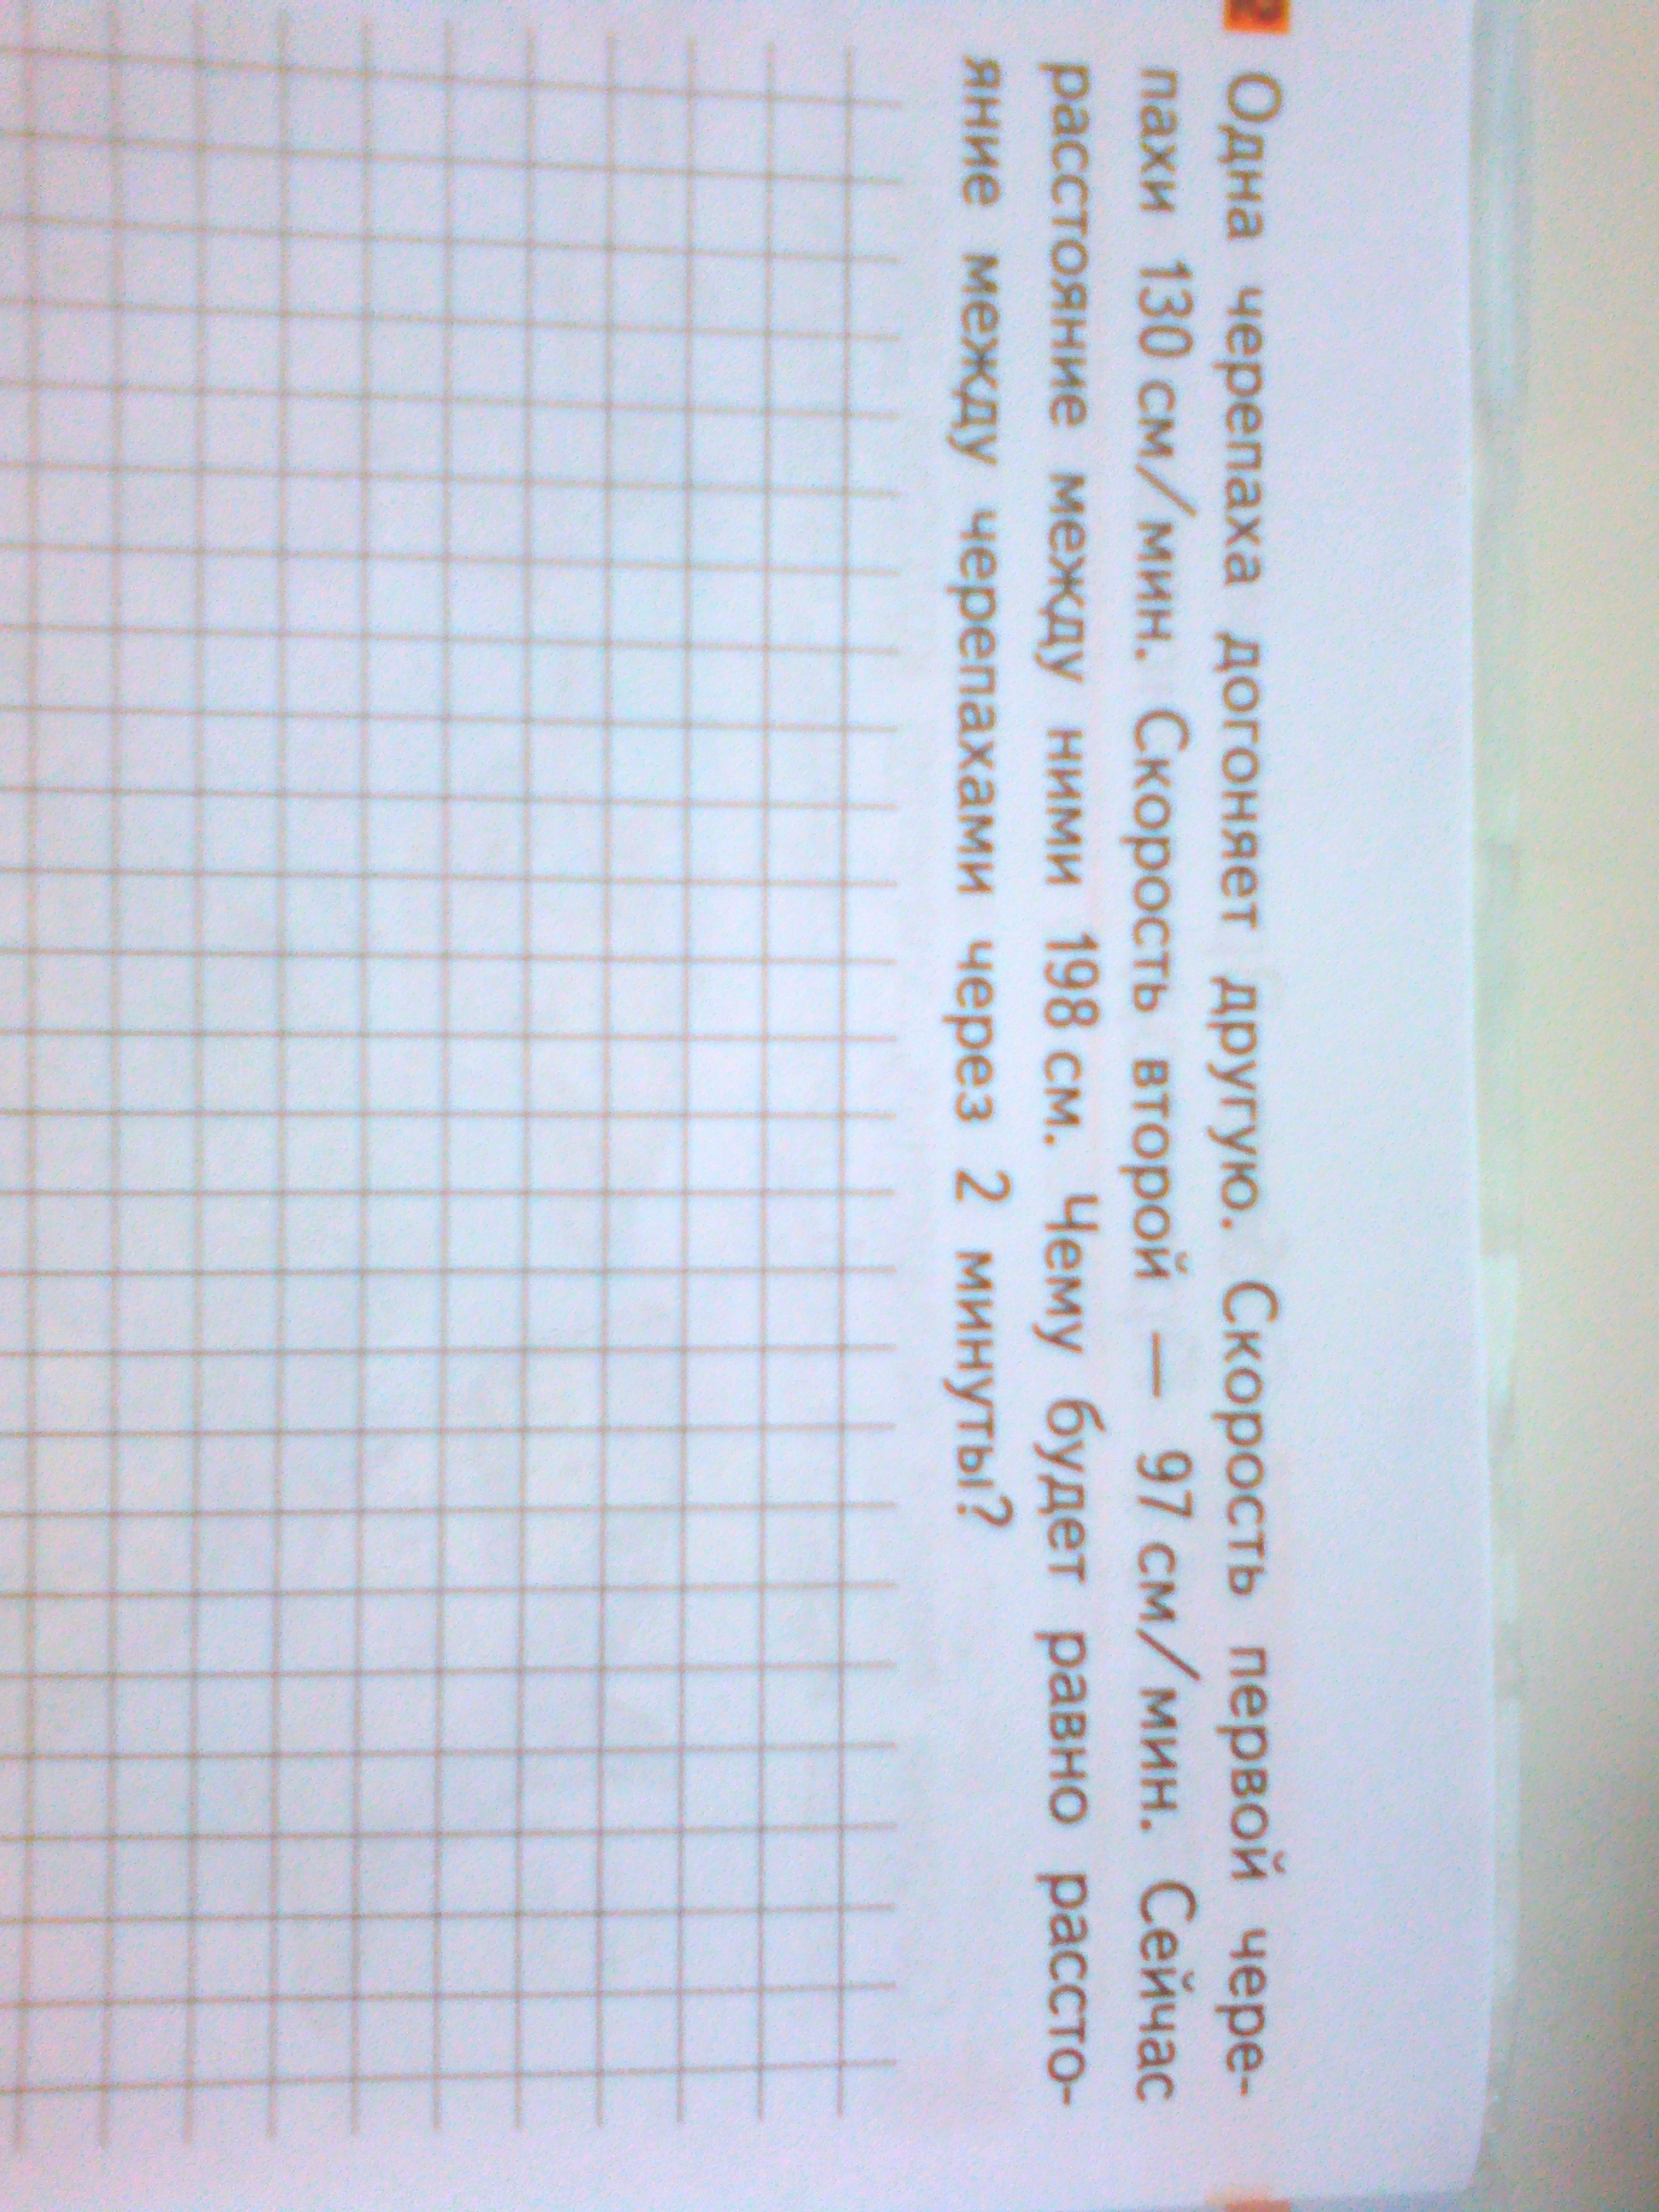 Одна черепаха догоняет другую. Скорость первой чере-
пахи 130 см/мин. Скорость второй — 97 см/мин. Сейчас
расстояние между ними 198 см. Чему будет равно рассто-
яние между черепахами через 2 минуты?